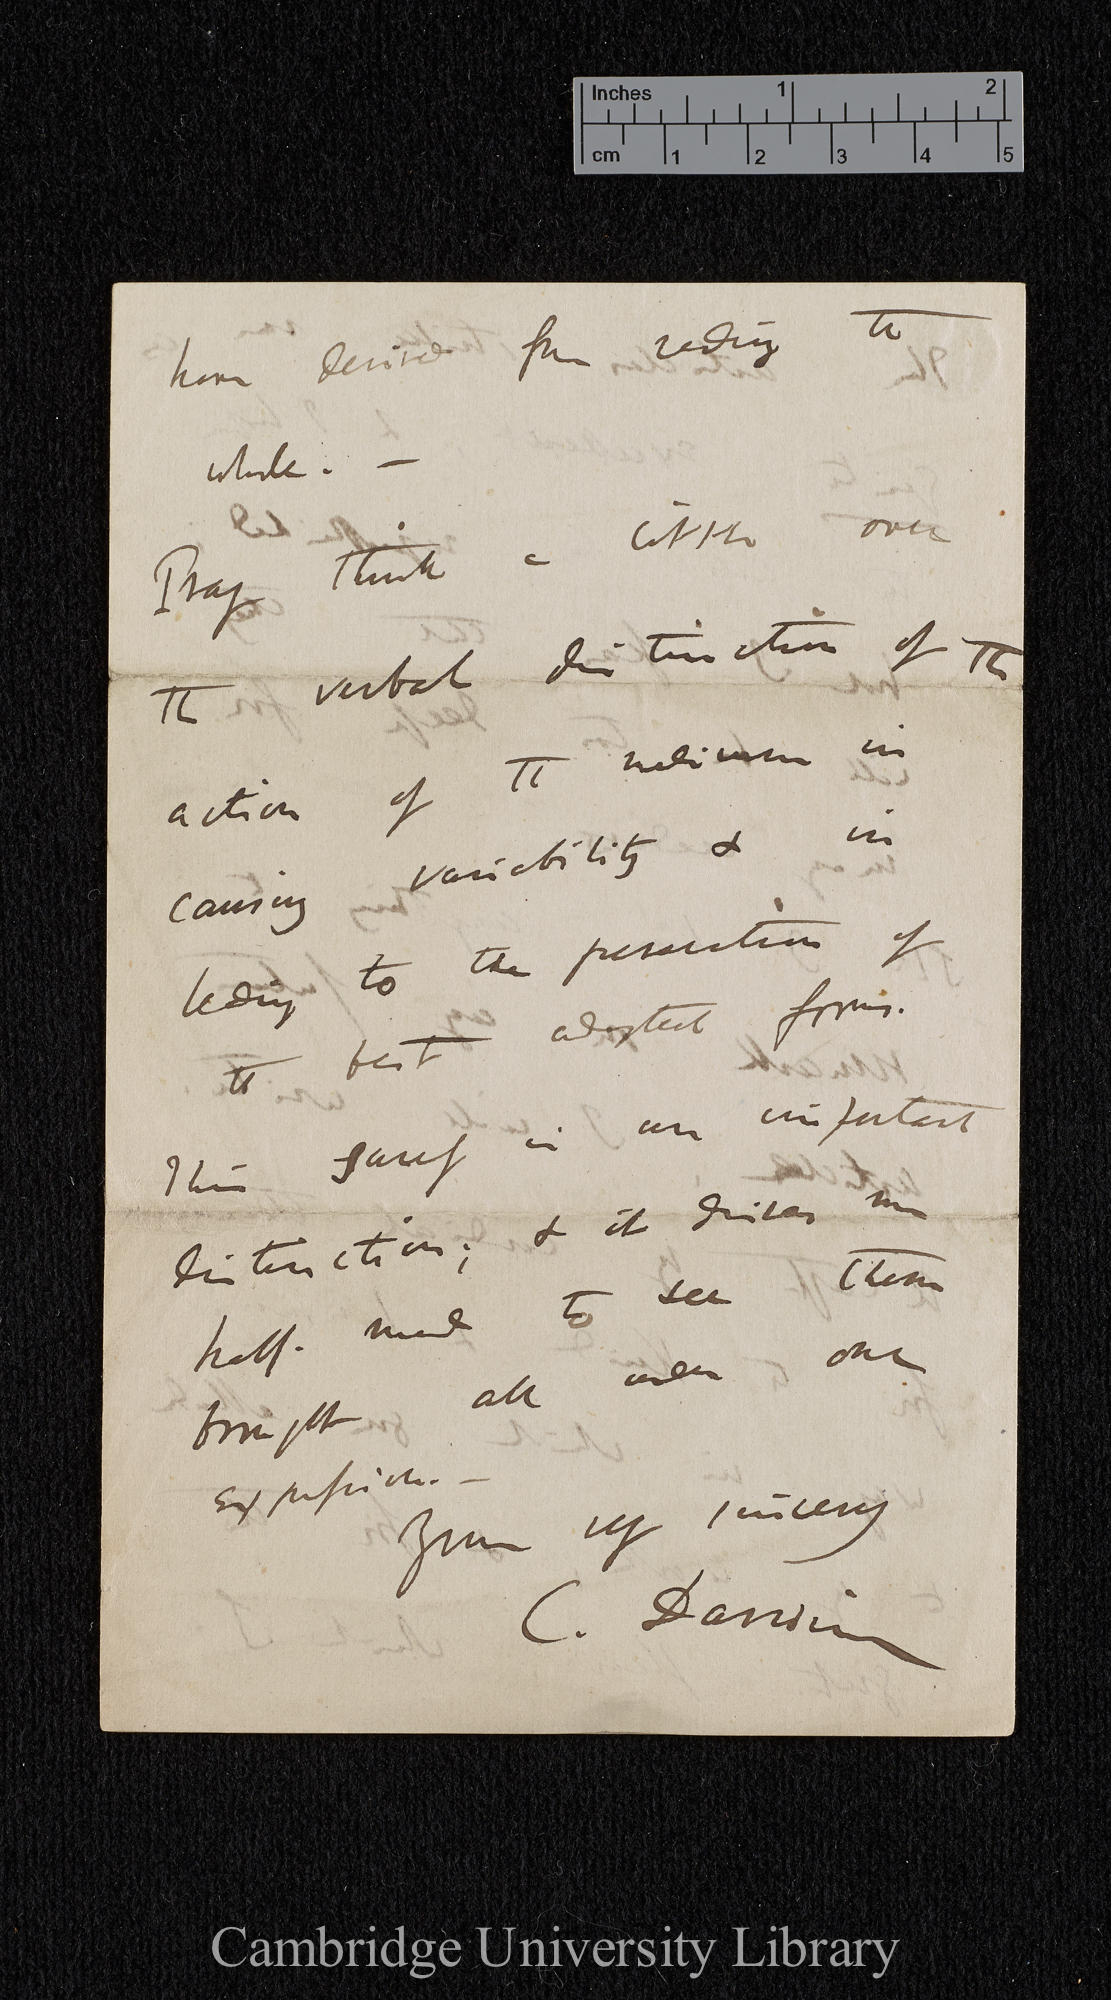 Inches 1 2
cm 1 2 3 4 5
have derived from reading the
whole. —
Pray think a little over
the verbal distinction of the
action of the medium in
causing variability & in
leading to the preservation of
the best adapted forms.
This surely is an important
distinction; & it drives me
half-mad to see them
brought all under one
expression. —
Yours very sincerely
C. Darwin
Cambridge University Library